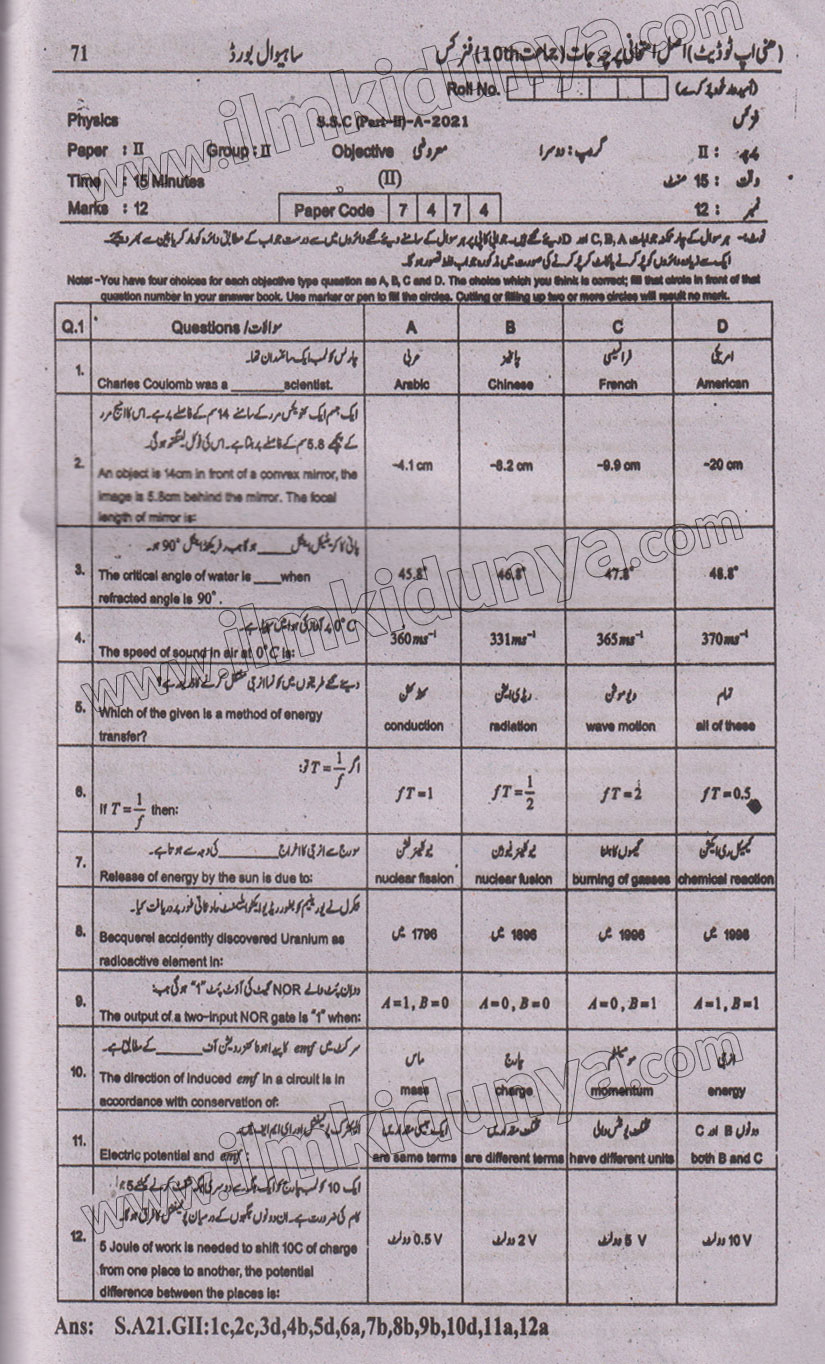 71 ساہیوال بورڈ (ھنی اپ ٹو ڈیٹ) اصل امتحانی پرچہ جات (جماعت 10th) فزکس
Roll No. (امیدوار خود پُر کرے)
Physics S.S.C (Part-II)-A-2021 فزکس
Paper : II Group : II Objective معروضی گروپ : دوسرا پرچہ : II
Time : 15 Minutes (II) وقت : 15 منٹ
Marks : 12 Paper Code 7 4 7 4 نمبر : 12
نوٹ:- ہر سوال کے چار ممکنہ جوابات A, B, C اور D دیئے گئے ہیں۔ جوابی کاپی پر ہر سوال کے سامنے دیئے گئے دائروں میں سے درست جواب کے مطابق دائرہ کو مارکر یا پین سے بھر دیجئے۔
ایک سے زیادہ دائروں کو پُر کرنے یا کاٹ کر پُر کرنے کی صورت میں مذکورہ جواب غلط تصور ہوگا۔
Note: -You have four choices for each objective type question as A, B, C and D. The choice which you think is correct; fill that circle in front of that
question number in your answer book. Use marker or pen to fill the circles. Cutting or filling up two or more circles will result no mark.
Q.1 Questions / سوالات A B C D
1. چارلس کولمب ایک سائنسدان تھا۔ عربی چائنیز فرانسیسی امریکی
Charles Coulomb was a ______ scientist. Arabic Chinese French American
ایک جسم ایک کنویکس مرر کے سامنے 14 سم کے فاصلے پر ہے۔ اس کا امیج مرر
کے پیچھے 5.8 سم کے فاصلے پر بنتا ہے۔ اس کی فوکل لینگتھ ہوگی۔
2. An object is 14cm in front of a convex mirror, the -4.1 cm -8.2 cm -9.9 cm -20 cm
image is 5.8cm behind the mirror. The focal
length of mirror is:
پانی کا کریٹیکل اینگل ____ ہوگا جب رفریکٹڈ اینگل 90° ہو۔
3. The critical angle of water is ____ when 45.8° 46.8° 47.8° 48.8°
refracted angle is 90°.
0°C پر آواز کی ہوا میں سپیڈ ہے۔
4. The speed of sound in air at 0°C is: 360ms⁻¹ 331ms⁻¹ 365ms⁻¹ 370ms⁻¹
دیئے گئے طریقوں میں کونسا انرجی منتقل کرنے کا ذریعہ ہے؟ کنڈکشن ریڈی ایشن ویو موشن تمام
5. Which of the given is a method of energy conduction radiation wave motion all of these
transfer?
اگر T = 1/f تو:
6. If T = 1/f then: fT = 1 fT = 1/2 fT = 2 fT = 0.5
7. سورج سے انرجی کا اخراج ______ کی وجہ سے ہوتا ہے۔ نیوکلیئر فشن نیوکلیئر فیوژن گیسوں کا جلنا کیمیکل ری ایکشن
Release of energy by the sun is due to: nuclear fission nuclear fusion burning of gasses chemical reaction
8. Becquerel accidently discovered Uranium as 1796 میں 1896 میں 1996 میں 1998 میں
radioactive element in:
دو ان پٹ والے NOR گیٹ کی آؤٹ پٹ "1" ہوگی جب:
9. The output of a two-input NOR gate is "1" when: A=1, B=0 A=0, B=0 A=0, B=1 A=1, B=1
سرکٹ میں emf کا پیدا ہونا کنزرویشن آف ______ کے مطابق ہے۔ ماس چارج مومینٹم انرجی
10. The direction of induced emf in a circuit is in mass charge momentum energy
accordance with conservation of:
11. الیکٹرک پوٹینشل اور ای ایم ایف ایک جیسی مقداریں مختلف مقداریں مختلف یونٹس والی دونوں B اور C
Electric potential and emf : are same terms are different terms have different units both B and C
ایک 10 کولمب چارج کو ایک جگہ سے دوسری جگہ شفٹ کرنے کیلئے 5 جول
کام کی ضرورت ہے۔ ان دونوں جگہوں کے درمیان پوٹینشل کا فرق ہوگا۔
12. 5 Joule of work is needed to shift 10C of charge 0.5 V وولٹ 2 V وولٹ 5 V وولٹ 10 V وولٹ
from one place to another, the potential
difference between the places is:
Ans: S.A21.GII:1c,2c,3d,4b,5d,6a,7b,8b,9b,10d,11a,12a
www.ilmkidunya.com
www.ilmkidunya.com
www.ilmkidunya.com